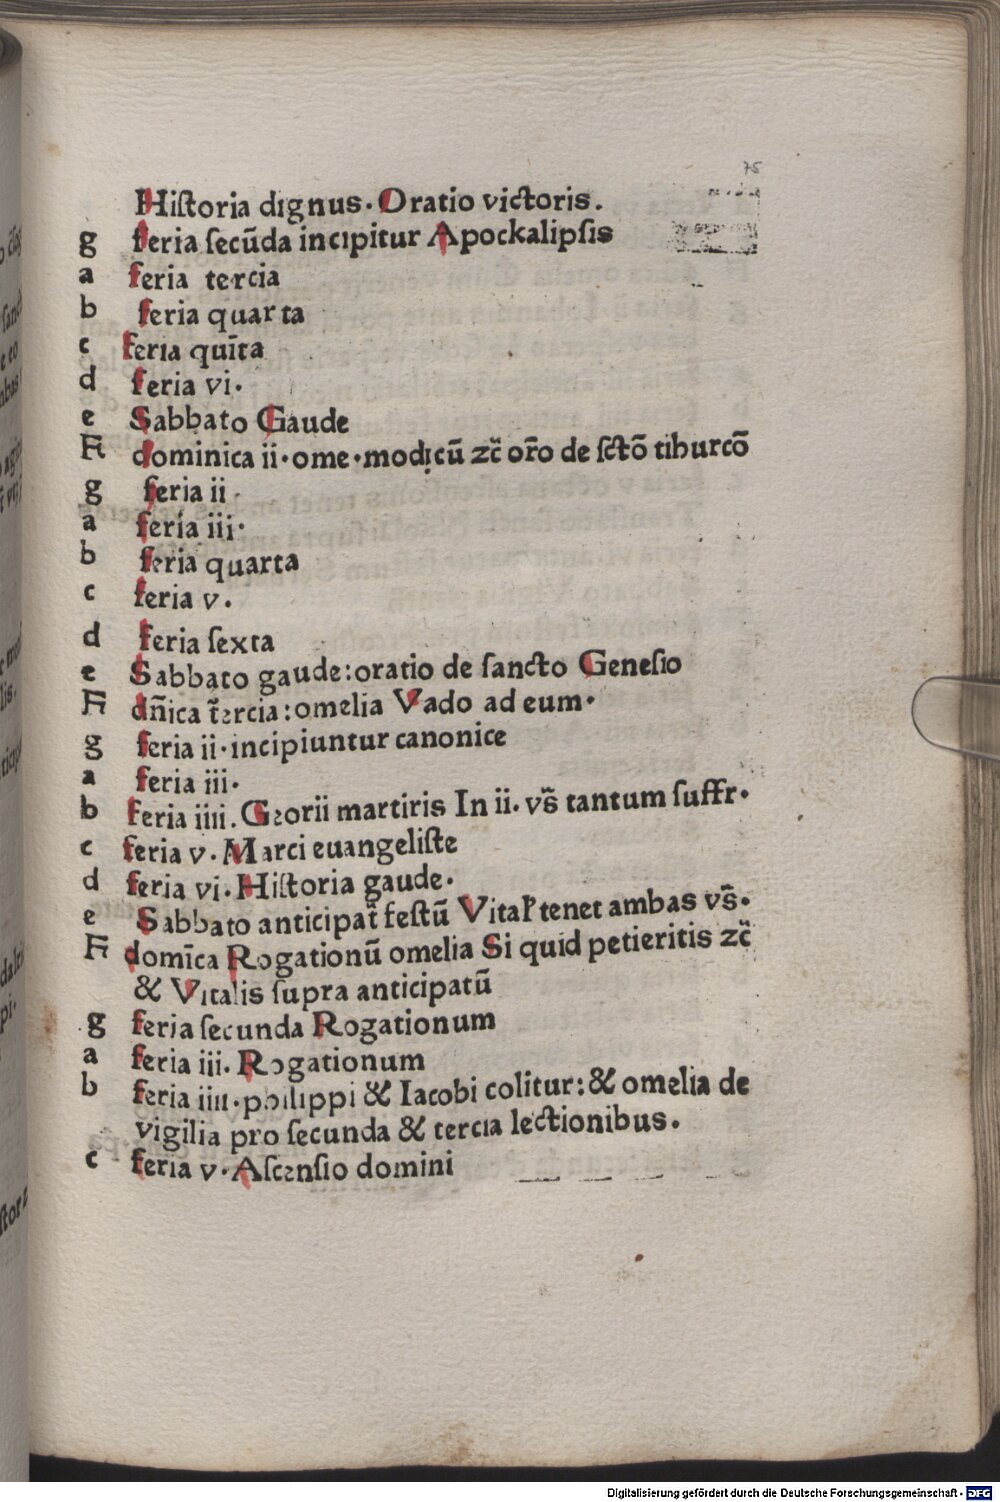 75
Hiſtoria dignus. Oratio victoris.
g feria ſecūda incipitur Apockalipſis
a feria tercia
b feria quarta
c feria quīta
d feria vi.
e Sabbato Gaude
A dominica ii. ome. modicū ⁊c̄ or̄o de ſctō tiburcō
g feria ii.
a feria iii.
b feria quarta
c feria v.
d feria ſexta
e Sabbato gaude: oratio de ſancto Geneſio
A dn̄ica t̄ercia: omelia Vado ad eum.
g feria ii. incipiuntur canonice
a feria iii.
b feria iiii. Georii martiris In ii. vs̄ tantum ſuffr.
c feria v. Marci euangeliſte
d feria vi. Hiſtoria gaude.
e Sabbato anticipat̄ feſtū Vital̕ tenet ambas vs̄.
A domīca Rogationū omelia Si quid petieritis ⁊c̄
& Vitalis ſupra anticipatū
g feria ſecunda Rogationum
a feria iii. Rogationum
b feria iiii. philippi & Iacobi colitur: & omelia de
vigilia pro ſecunda & tercia lectionibus.
c feria v. Aſcenſio domini
Digitalisierung gefördert durch die Deutsche Forschungsgemeinschaft - DFG